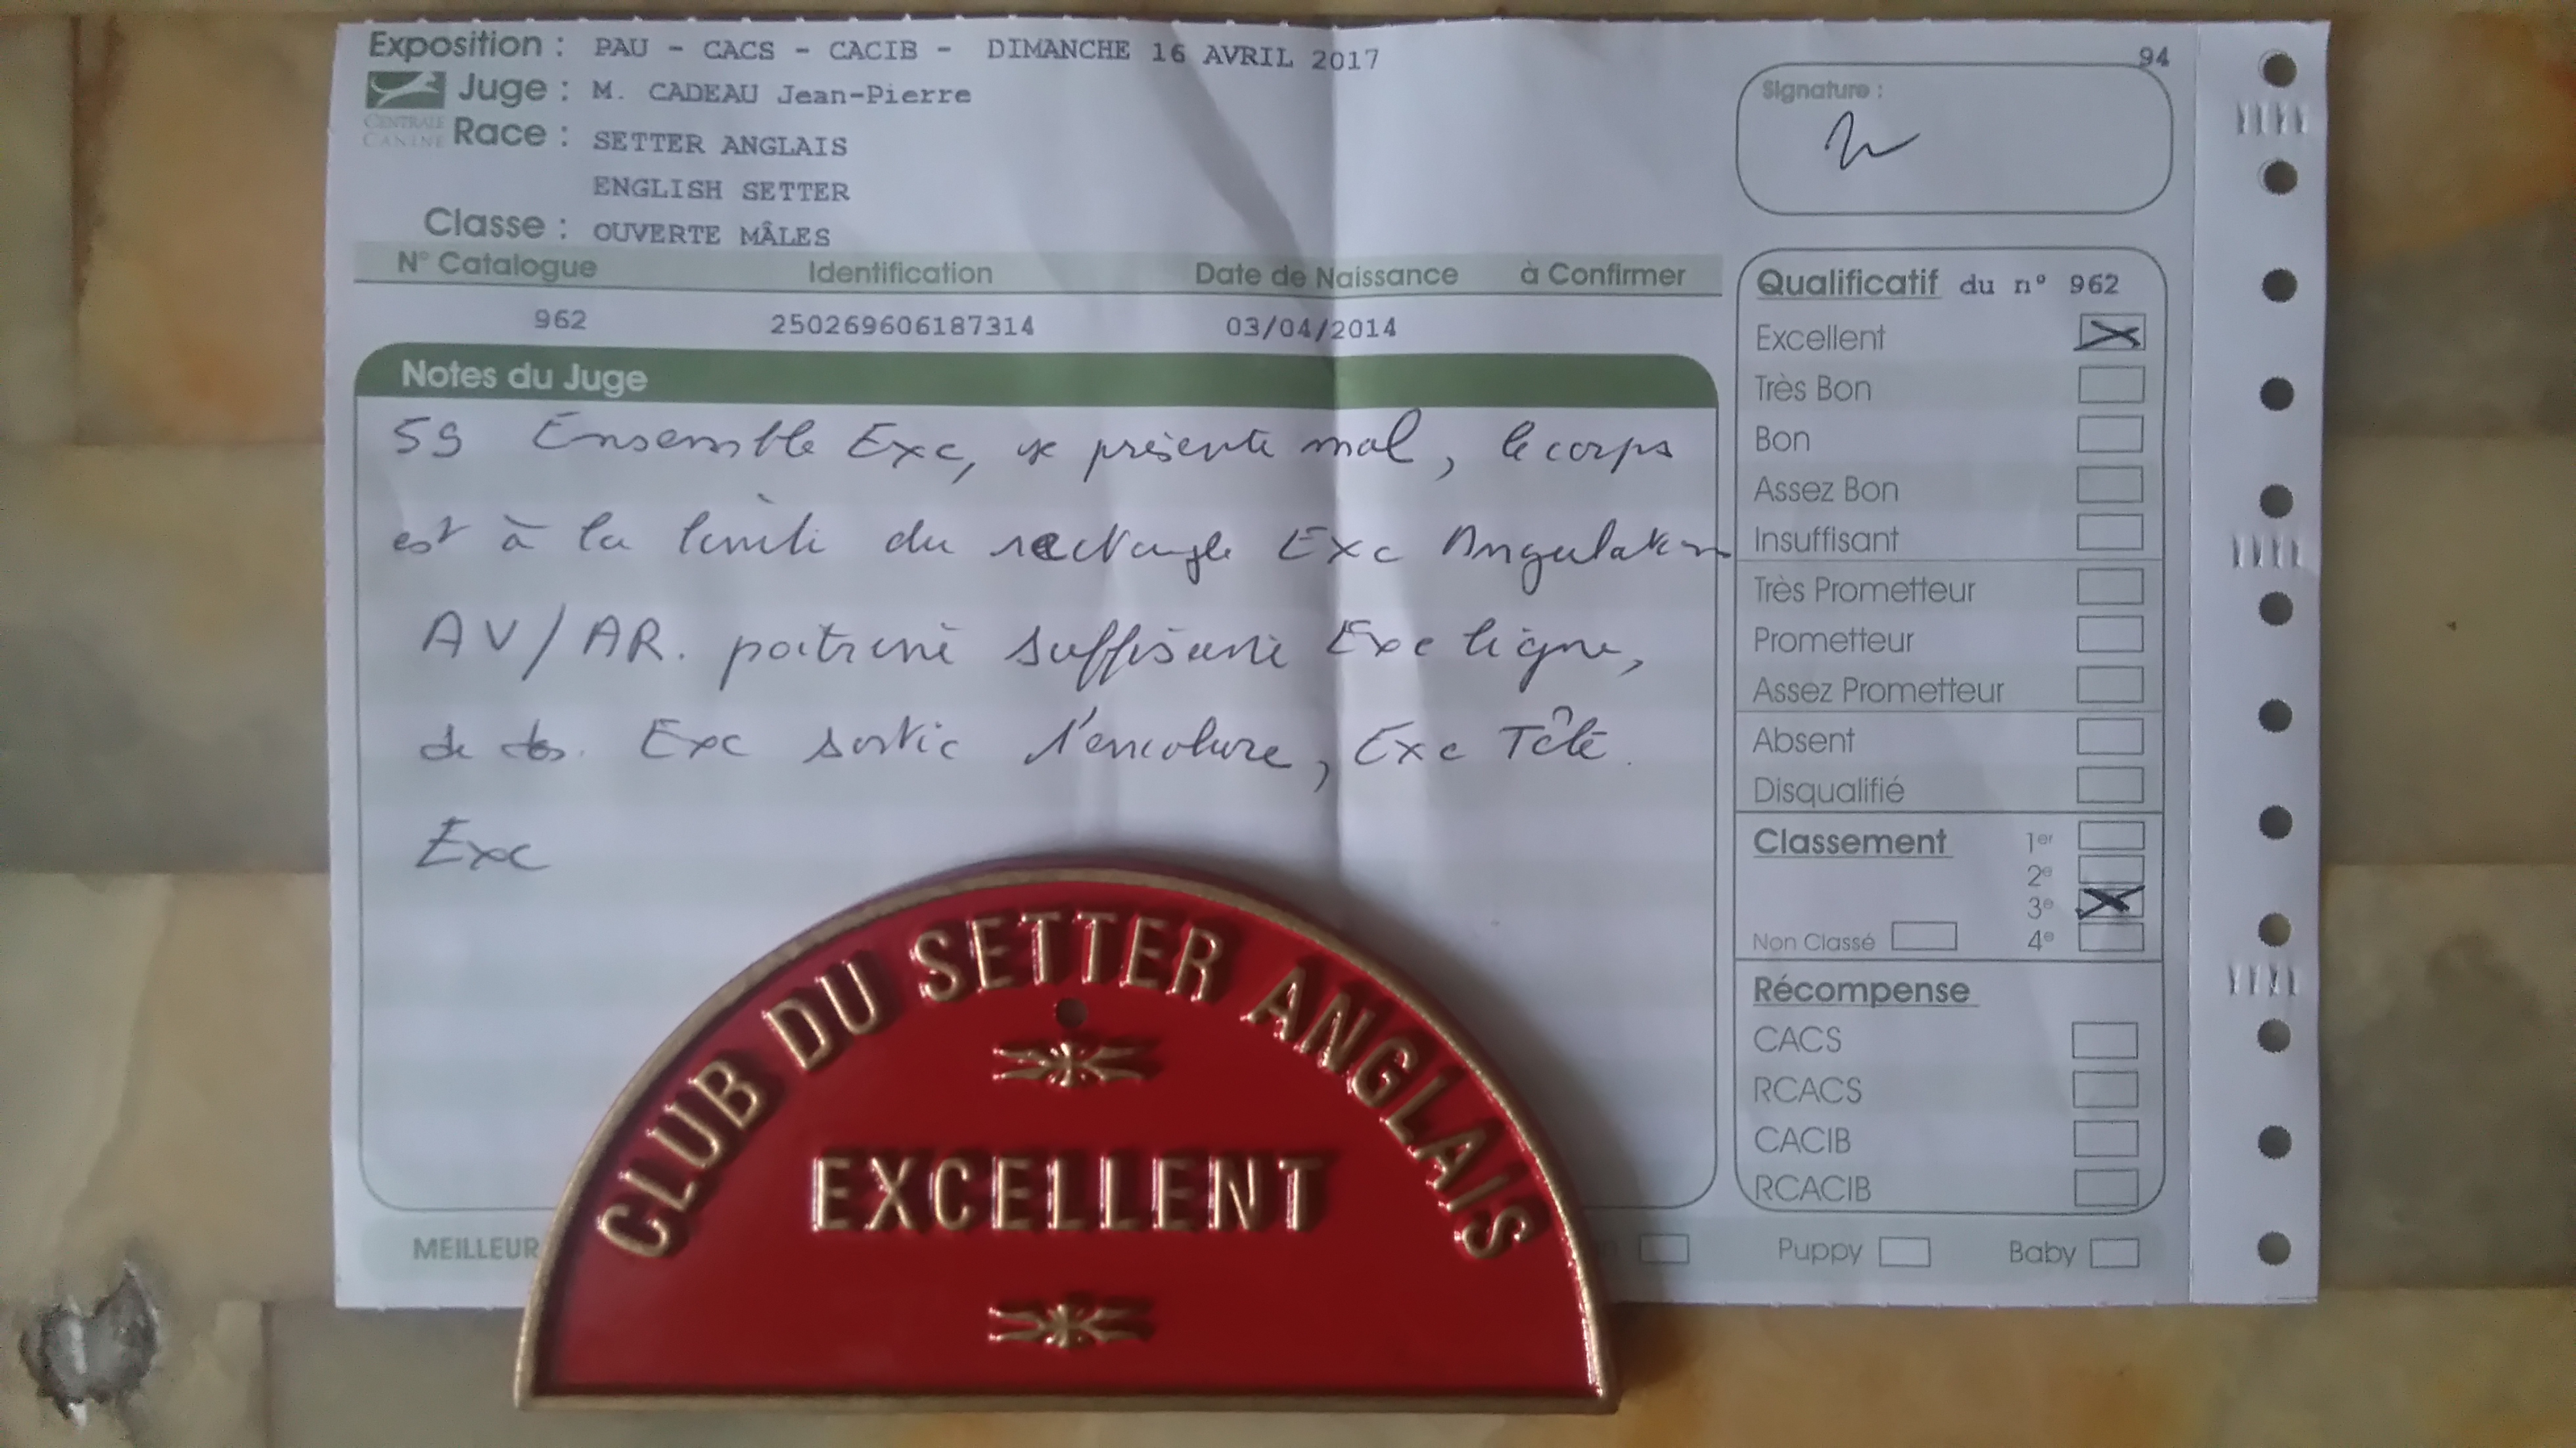 Exposition : PAU - CACS - CACIB - DIMANCHE 16 AVRIL 2017
94
Juge : M. CADEAU Jean-Pierre
CENTRALE CANINE
Race : SETTER ANGLAIS
ENGLISH SETTER
Classe : OUVERTE MÂLES
Signature :
N° Catalogue Identification Date de Naissance à Confirmer
962 250269606187314 03/04/2014
Notes du Juge
59 Ensemble Exc, se présente mal, le corps
est à la limite du rectangle Exc Angulation
AV/AR. poitrine suffisante Exc ligne,
de dos. Exc sortie d'encolure, Exc Tête.
Exc
Qualificatif du n° 962
Excellent
Très Bon
Bon
Assez Bon
Insuffisant
Très Prometteur
Prometteur
Assez Prometteur
Absent
Disqualifié
Classement 1er
2e
3e
Non Classé 4e
Récompense
CACS
RCACS
CACIB
RCACIB
MEILLEUR
Puppy Baby
CLUB DU SETTER ANGLAIS
EXCELLENT